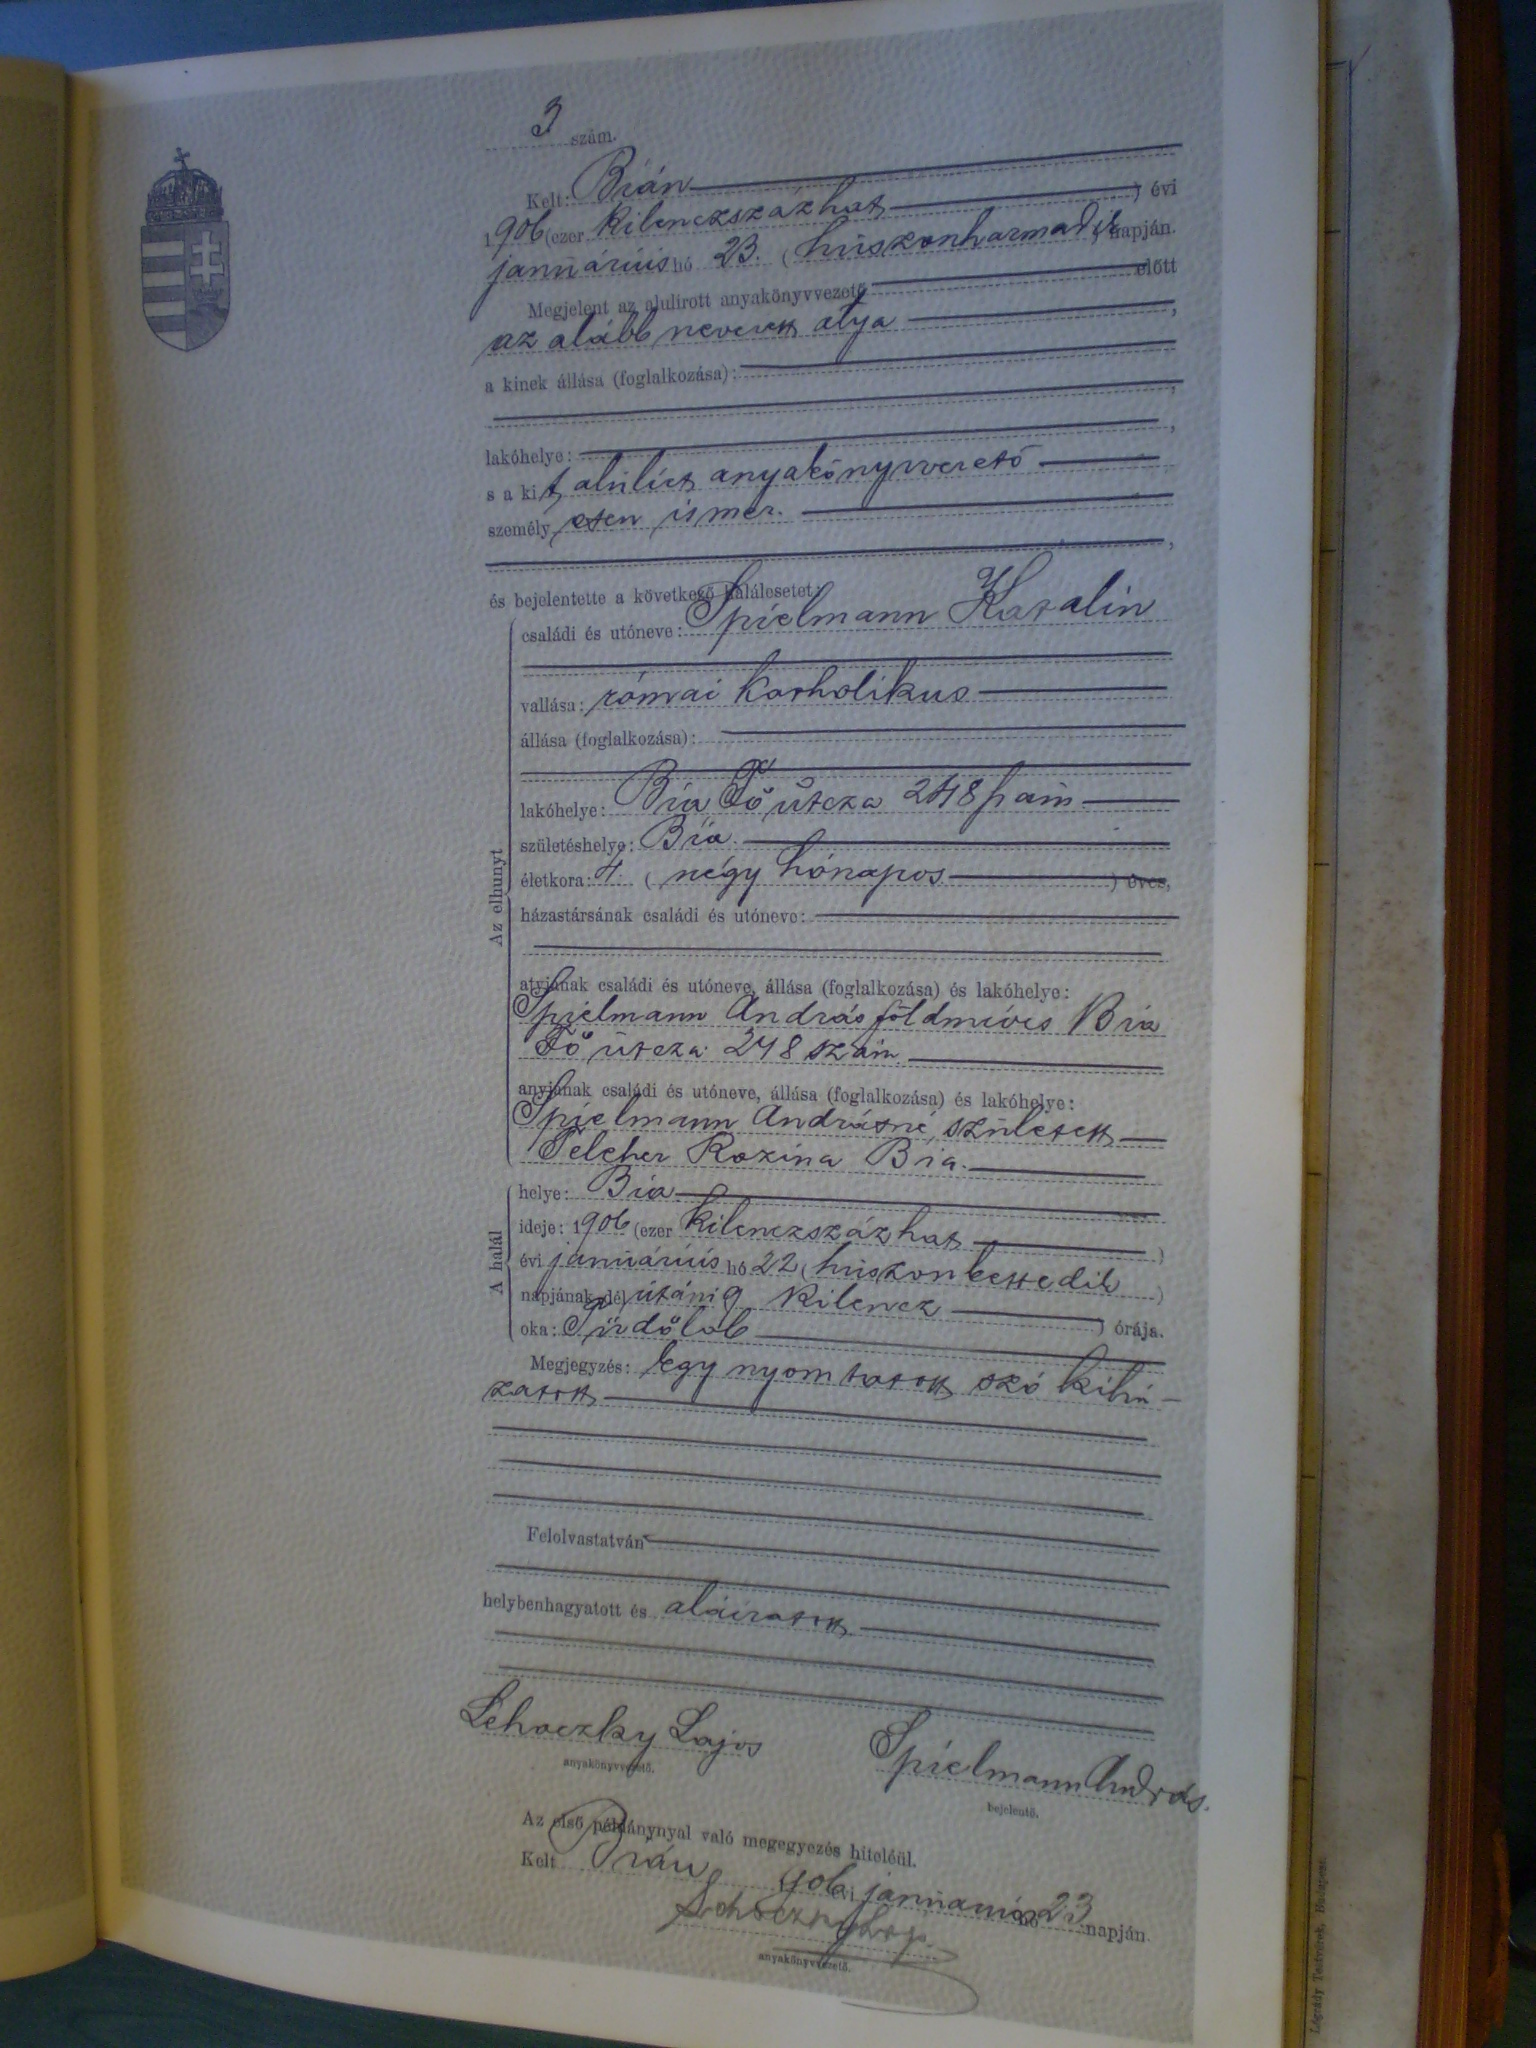 3 szám.
Kelt: Bián
1906 (ezer kilenczszázhat ) évi
januárius hó 23. (huszonharmadik) napján.
Megjelent az alulirott anyakönyvvezető előtt
az alább nevezett atyja ,
a kinek állása (foglalkozása):
,
lakóhelye: ,
s a kit alulírt anyakönyvvezető
személyesen ismer.
,
és bejelentette a következő halálesetet:
Az elhunyt
családi és utóneve: Spielmann Katalin
vallása: római katholikus
állása (foglalkozása):
lakóhelye: Bia Fő útcza 248 szám
születéshelye: Bia.
életkora: 4. ( négy hónapos ) éves,
házastársának családi és utóneve:
atyjának családi és utóneve, állása (foglalkozása) és lakóhelye:
Spielmann András földmíves Bia
Fő útcza 248 szám.
anyjának családi és utóneve, állása (foglalkozása) és lakóhelye:
Spielmann Andrásné, született
Felcher Rozina Bia.
A halál
helye: Bia
ideje: 1906 (ezer kilenczszázhat )
évi januárius hó 22 (huszonkettedik )
napjának dél utáni 9 kilencz ) órája.
oka: Tüdőlob
Megjegyzés: Egy nyomtatott szó kihú-
zatott
Felolvastatván
helybenhagyatott és aláiratott.
Lehoczky Lajos
anyakönyvvezető.
Spielmann András.
bejelentő.
Az első példánynyal való megegyezés hiteléül.
Kelt Bián, 906 évi januárius hó 23 napján.
Lehoczky Lajos
anyakönyvvezető.
Légrády Testvérek, Budapest.